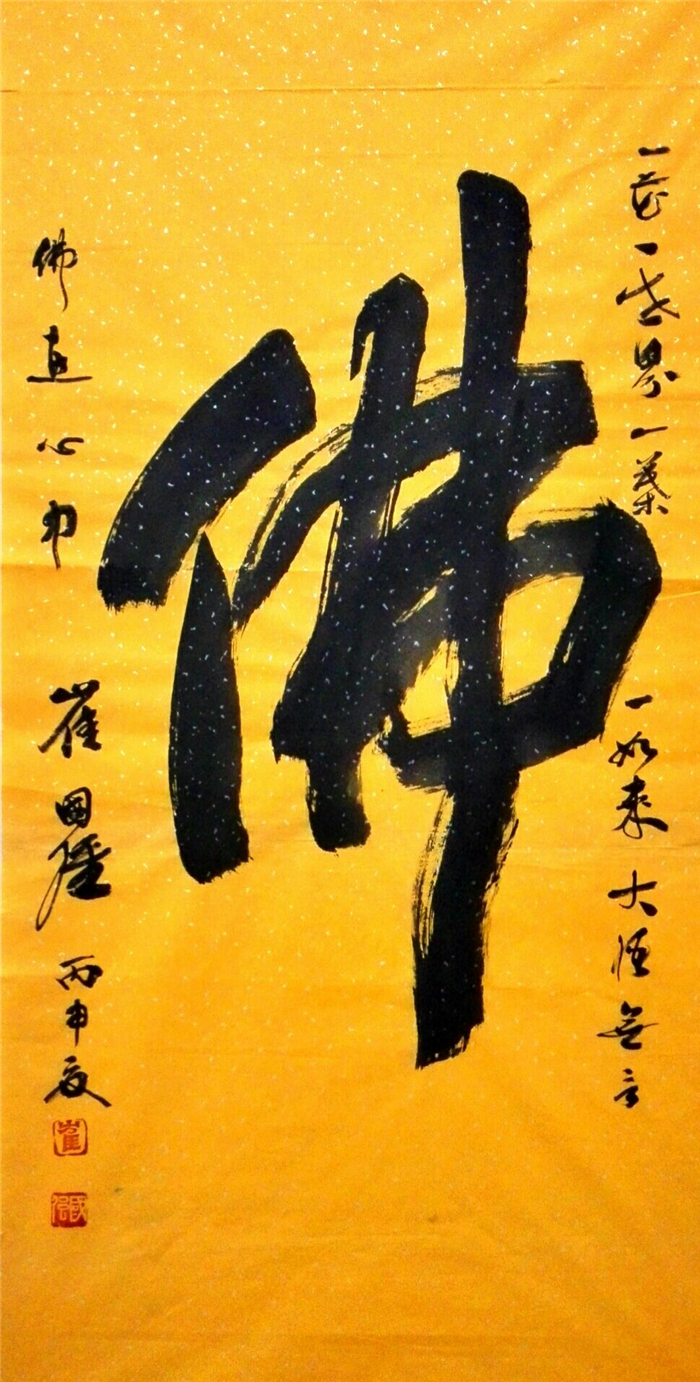 一花一世界一葉一如來大悟無言
佛
佛心中
崔國丙申夏
崔